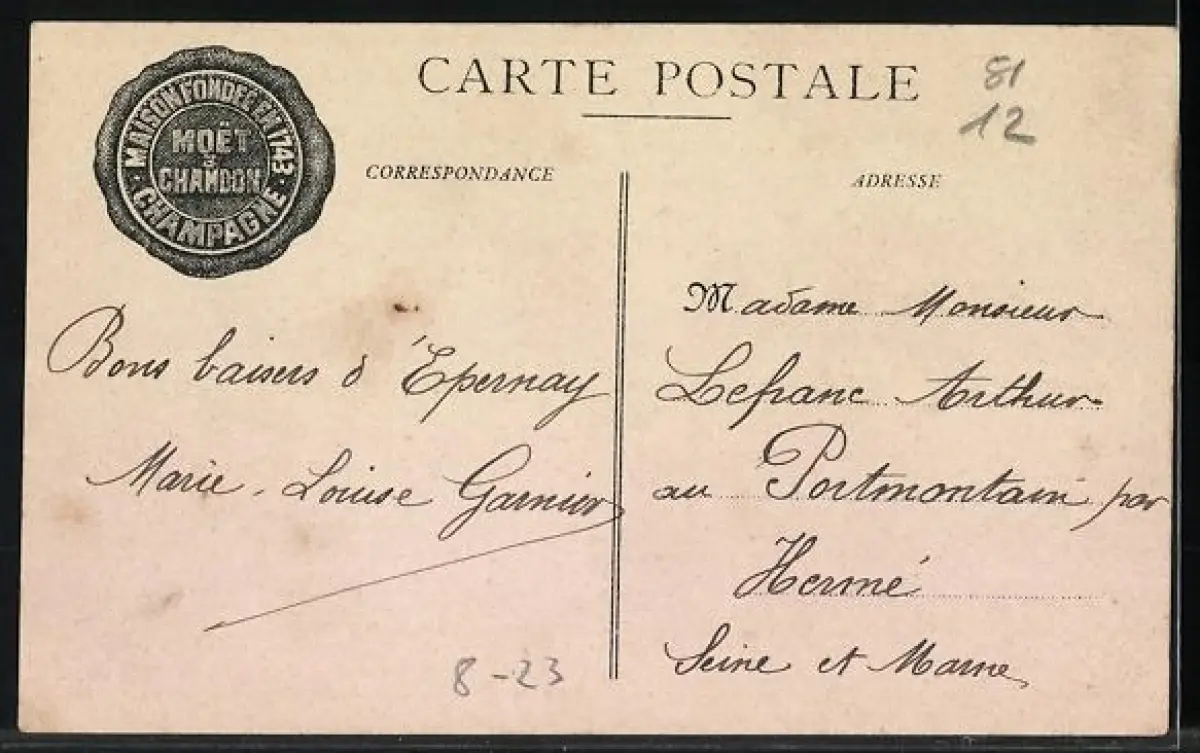 CARTE POSTALE
81
12
MAISON FONDÉE EN 1743
MOËT
&
CHANDON
CHAMPAGNE
CORRESPONDANCE
Bons baisers d'Épernay
Marie-Louise Garnier
8-23
ADRESSE
Madame Monsieur
Lefranc Arthur
au Portmontain par
Hermé
Seine et Marne